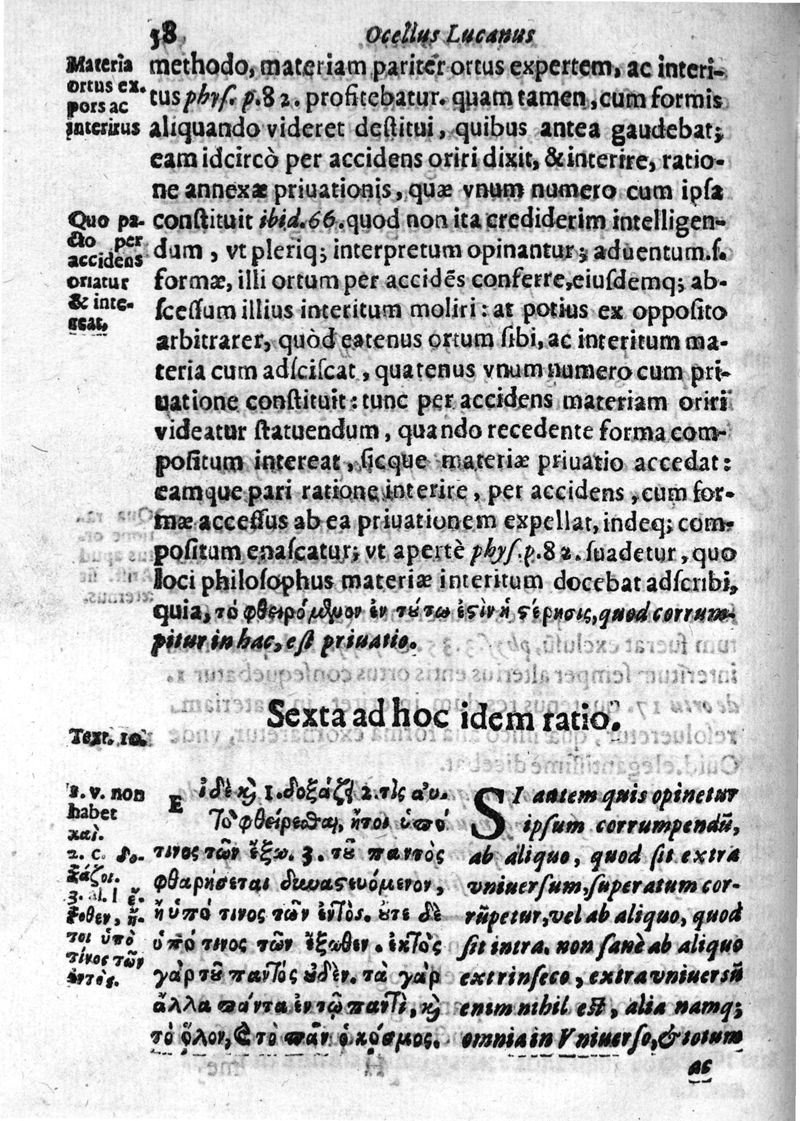 58
Ocellus Lucanus
Materia
ortus ex.
pors ac
interitus
methodo, materiam pariter ortus expertem, ac interi-
tus phyſ. p. 82. profitebatur. quam tamen, cum formis
aliquando videret deſtitui, quibus antea gaudebat;
eam idcircò per accidens oriri dixit, & interire, ratio-
ne annexæ priuationis, quæ vnum numero cum ipſa
Quo pa-
cto per
accidens
oriatur
& inte-
reat.
conſtituit ibid. 66. quod non ita crediderim intelligen-
dum, vt pleriq; interpretum opinantur; aduentum.ſ.
formæ, illi ortum per accidēs conferre, eiuſdemq; ab-
ſceſſum illius interitum moliri: at potius ex oppoſito
arbitrarer, quòd eatenus ortum ſibi, ac interitum ma-
teria cum adſciſcat, quatenus vnum numero cum pri-
uatione conſtituit: tunc per accidens materiam oriri
videatur ſtatuendum, quando recedente forma com-
poſitum intereat, ſicque materiæ priuatio accedat:
eamque pari ratione interire, per accidens, cum for-
mæ acceſſus ab ea priuationem expellat, indeq; com-
poſitum enaſcatur; vt apertè phyſ. p. 82. ſuadetur, quo
loci philoſophus materiæ interitum docebat adſcribi,
quia, τὸ φθειρόμενον ἐν τούτω ἐςὶν ἡ ςέρησις, quod corrum-
pitur in hac, eſt priuatio.
Sexta ad hoc idem ratio.
Text. 10.
1. v. non
habet
καὶ.
2. c. δο-
ξάζοι.
3. al. ἔ-
ξοθεν, ἤ-
τοι ὑπὸ
τίνος τῶν
ἐντὸς.
Εἰ δὲ κὶ 1. δοξάζῃ 2. τὶς αὐ-
Τὸ φθείρεσθαι, ἤτοι ὑπό
τινος τῶν ἔξω. 3. τοῦ παντὸς
φθαρήσεται δυναςευόμενον,
ἢ ὑπό τινος τῶν ἐντὸς. οὔτε δὲ
ὑπό τινος τῶν ἔξωθεν. ἐκτὸς
γὰρ τοῦ παντὸς οὐδὲν. τὰ γὰρ
ἄλλα πάντα ἐν τῷ παντὶ, κὶ
τὸ ὅλον, & τὸ πᾶν ὁ κόσμος.
SI autem quis opinetur
ipſum corrumpendū,
ab aliquo, quod ſit extra
vniuerſum, ſuperatum cor-
rūpetur, vel ab aliquo, quod
ſit intra. non ſanè ab aliquo
extrinſeco, extra vniuerſū
enim nihil eſt, alia namq;
omnia in Vniuerſo, & totum
ac